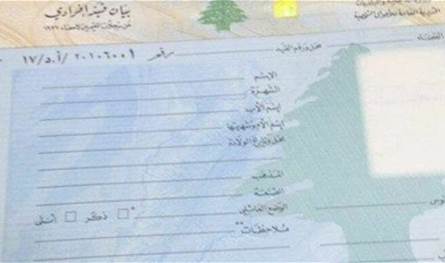 بيان قيد إفرادي
رقم ٢٠١٠٦٠٠١ /أ.د/١٧
محل ورقم القيد
الإسم
الشهرة
إسم الأب
إسم الأم وشهرتها
محل وتاريخ الولادة
المذهب
الصنعة
الوضع العائلي
* ذكر أنثى
ملاحظات**